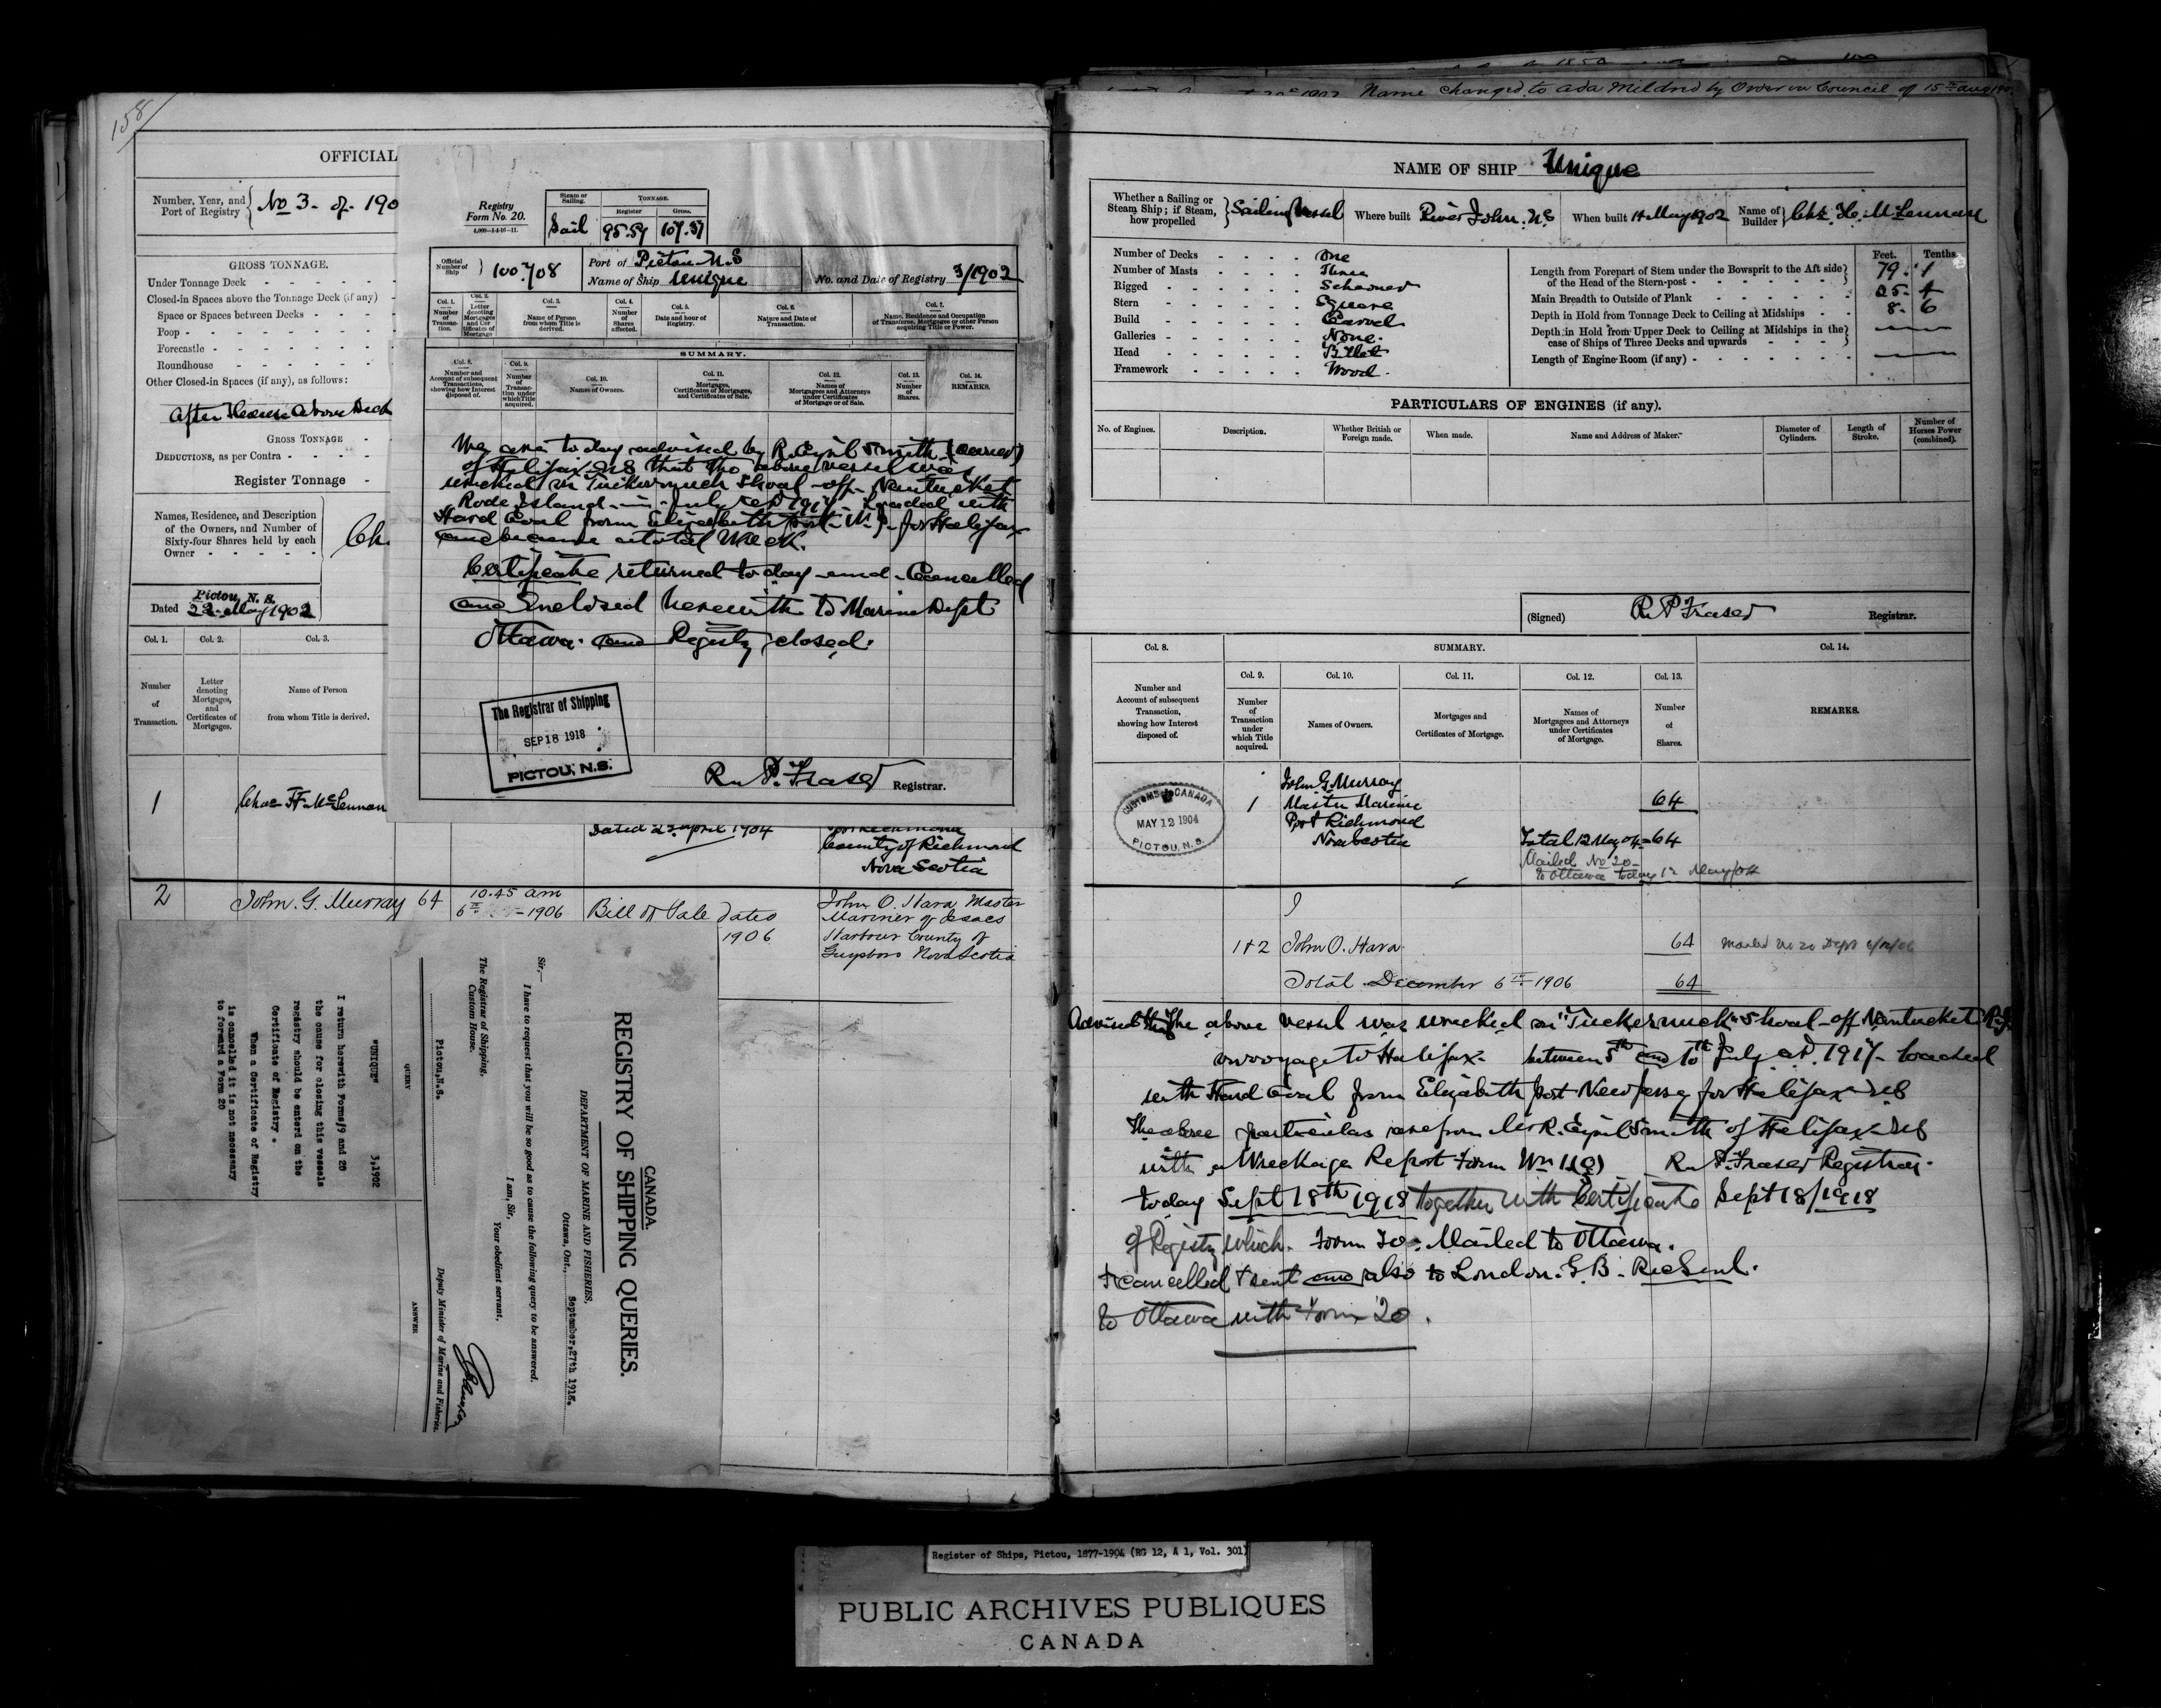 158
OFFICIAL
Number, Year, and
Port of Registry
No 3 - of - 190
GROSS TONNAGE.
Under Tonnage Deck
Closed-in Spaces above the Tonnage Deck (if any)
Space or Spaces between Decks
Poop
Forecastle
Roundhouse
Other Closed-in Spaces (if any), as follows:
After House Above Deck
GROSS TONNAGE
DEDUCTIONS, as per Contra
Register Tonnage
Names, Residence, and Description
of the Owners, and Number of
Sixty-four Shares held by each
Owner
Ch.
Pictou, N. S.
Dated 22 May 1902
Col. 1. Col. 2. Col. 3.
Number
of
Transaction.
Letter
denoting
Mortgages,
and
Certificates of
Mortgages.
Name of Person
from whom Title is derived.
1 Chas H McLennan
Dated 22 April 1904
Port Richmond
County of Richmond
Nova Scotia
2 John. G. Murray 64 10.45 am
6th 1906 Bill of Sale dated
1906
John O. Hara Master
Mariner of Isaacs
Harbour County of
Guysboro Nova Scotia
Registry
Form No. 20.
Steam or
Sailing.
TONNAGE.
Register Gross.
Sail 95.59 107.37
Official
Number of
Ship
100.708
Port of Pictou N.S
Name of Ship Unique
No. and Date of Registry 3/1902
Col. 1.
Number
of
Transac-
tion.
Col. 2.
Letter
denoting
Mortgages
and Cer
tificates of
Mortgage
Col. 3.
Name of Person
from whom Title is
derived.
Col. 4.
Number
of
Shares
affected.
Col. 5.
Date and hour of
Registry.
Col. 6.
Nature and Date of
Transaction.
Col. 7.
Name, Residence and Occupation
of Transferee, Mortgagee or other Person
acquiring Title or Power.
SUMMARY.
Col. 8.
Number and
Account of subsequent
Transactions,
showing how Interest
disposed of.
Col. 9.
Number
of
Transac-
tion under
which Title
acquired.
Col. 10.
Names of Owners.
Col. 11.
Mortgages,
Certificates of Mortgages,
and Certificates of Sale.
Col. 12.
Names of
Mortgagees and Attorneys
under Certificates
of Mortgage or of Sale.
Col. 13.
Number
of
Shares.
Col. 14.
REMARKS.
We are to day advised by R. Cyril Smith (owner)
of Halifax NS that the above vessel was
wrecked on Tuckernuck Shoal off Nantucket
Rode Island in July 1917 Loaded with
Hard Coal from Elizabeth port N.J. for Halifax
and became a total Wreck.
Certificate returned to day and Cancelled
and Enclosed herewith to Marine Dept
Ottawa. and Registry closed.
The Registrar of Shipping
SEP 18 1918
PICTOU, N.S.
R. P. Fraser Registrar.
CANADA.
REGISTRY OF SHIPPING QUERIES.
DEPARTMENT OF MARINE AND FISHERIES,
Ottawa, Ont., September, 27th 1918.
Sir,—
I have to request that you will be so good as to cause the following query to be answered.
I am, Sir,
Your obedient servant.
The Registrar of Shipping,
Custom House.
Pictou, N.S.
Deputy Minister of Marine and Fisheries.
QUERY ANSWER
"UNIQUE" 3,1902
I return herewith Forms/9 and 20
the cause for closing this vessels
registry should be enterd on the
Certificate of Registry.
When a Certificate of Registry
is cancelled it is not necessary
to forward a Form 20
Name changed to Ada Mildred by Order in Council of 15th Aug 190
NAME OF SHIP Unique
Whether a Sailing or
Steam Ship; if Steam,
how propelled
Sailing Vessel
Where built River John. N.S
When built 14 May 1902
Name of
Builder
Chs. H. McLennan
Number of Decks One
Number of Masts Three
Rigged Schooner
Stern Square
Build Carvel
Galleries None.
Head Billet
Framework Wood.
Feet. Tenths.
Length from Forepart of Stem under the Bowsprit to the Aft side
of the Head of the Stern-post 79. 1
Main Breadth to Outside of Plank 25. 4
Depth in Hold from Tonnage Deck to Ceiling at Midships 8. 6
Depth in Hold from Upper Deck to Ceiling at Midships in the
case of Ships of Three Decks and upwards
Length of Engine Room (if any)
PARTICULARS OF ENGINES (if any).
No. of Engines.
Description.
Whether British or
Foreign made.
When made.
Name and Address of Maker.
Diameter of
Cylinders.
Length of
Stroke.
Number of
Horses Power
(combined).
(Signed) R. P Fraser Registrar.
Col. 8. SUMMARY. Col. 14.
Number and
Account of subsequent
Transaction,
showing how Interest
disposed of.
Col. 9.
Number
of
Transaction
under
which Title
acquired.
Col. 10.
Names of Owners.
Col. 11.
Mortgages and
Certificates of Mortgage.
Col. 12.
Names of
Mortgagees and Attorneys
under Certificates
of Mortgage.
Col. 13.
Number
of
Shares.
REMARKS.
CUSTOMS CANADA
MAY 12 1904
PICTOU, N.S.
1 John G. Murray
Master Marine
Port Richmond
Nova Scotia
64
Total 12 May 04 = 64
Mailed No 20
to Ottawa today 12 May/04
1+2 John O. Hara 64 Mailed No 20 Dept 6/12/06
Total December 6th 1906 64
Advised the above vessel was wrecked on "Tuckernuck" Shoal off Nantucket R.I.
on voyage to Halifax. between 5th and 10th July A.D. 1917 - loaded
with Hard Coal from Elizabeth port New Jersey for Halifax NS
The above particulars are from Mr R. Cyril Smith of Halifax NS
with a Wreckage Report Form R. P. Fraser Registrar.
today Sept 18th 1918 together with Certificate Sept 18/1918
of Registry which. Form 20. Mailed to Ottawa.
+ cancelled + sent and also to London. G.B.
to Ottawa with Form 20.
Register of Ships, Pictou, 1877-1904 (RG 12, A 1, Vol. 301)
PUBLIC ARCHIVES PUBLIQUES
CANADA